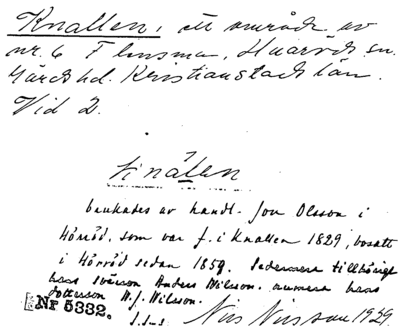 Knallen, ett område av
nr. 6 Flensma, Huaröds sn.
Gärds hd. Kristianstads län.
Vid 2.
Knallen
bankades av handl. Jon Olsson i
Hörröd, som var f. i Knallen 1829, bosatt
i Hörröd sedan 1859. Sedermera tillhörigt
hans svärson Anders Nilsson. numera hans
dotterson N. J. Nilsson.
Nils Nilsson 1929.
Nr 5332.